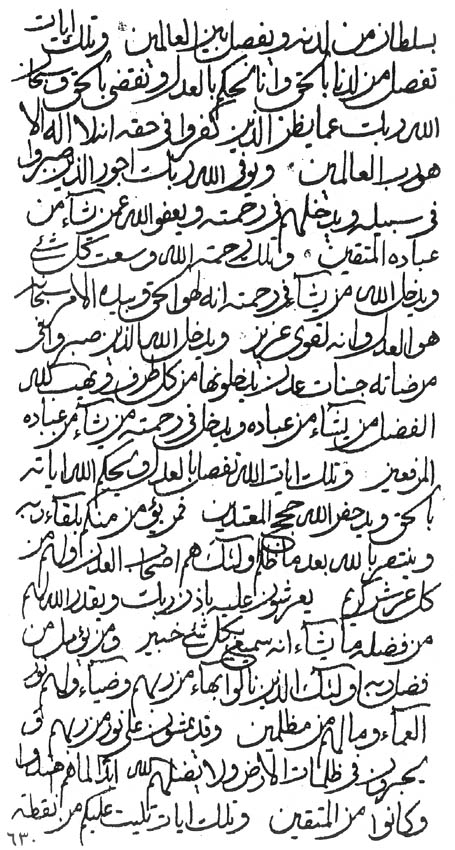 بسلطان من لدنه ويفصل بين العالمين وتلك ايات
تفصل من لدنا بالحق وانا نحكم بالعدل ونقضى بالحق وسبحان
الله ربك عما يظن الذين كفروا فى حقه انه لا اله الا
هو رب العالمين ويوفى الله ربك اجور الذين صبروا
فى سبيله ويدخلهم فى رحمته ويعفو الله عمن يشآء من
عباده المتقين وتلك رحمة الله وسعت كل شئ
ويدخل الله من يشآء فى رحمته انه لهو الحق وبيده الامر سبحانه
هو العدل وانه لقوى عزيز ويدخل الله الذين صبروا فى
مرضاته جنات عدن يدخلونها من كل طرف ويهب الله
الفضل من يشآء من عباده ويدخل فى رحمته من يشآء من عباده
وتلك ايات الله نفصل بالعدل ويحكم الله اياته
بالحق ويدحض الله حجج المعتدين فمن يؤمن منكم بلقآء ربه
وينتصر بالله بعد ما ظلم اولئك هم اصحاب العدن ولهم من
كل عرش كريم يعرشون عليه باذن ربك ويقدر الله لهم
من فضله ما يشآء انه سميع بكل شئ خبير ومن يؤمن من
فضل ربه اولئك الذين نالوا بهآء من ربهم وضيآء ولهم نور
العمآء وما لهم من مظلمين وقد يمشون على نور من ربهم و
فى ظلمات الارض ولا يضلهم الله ابدا لما هم
وكانوا من المتقين وتلك ايات تليت عليكم من نقطة
٦٣٠